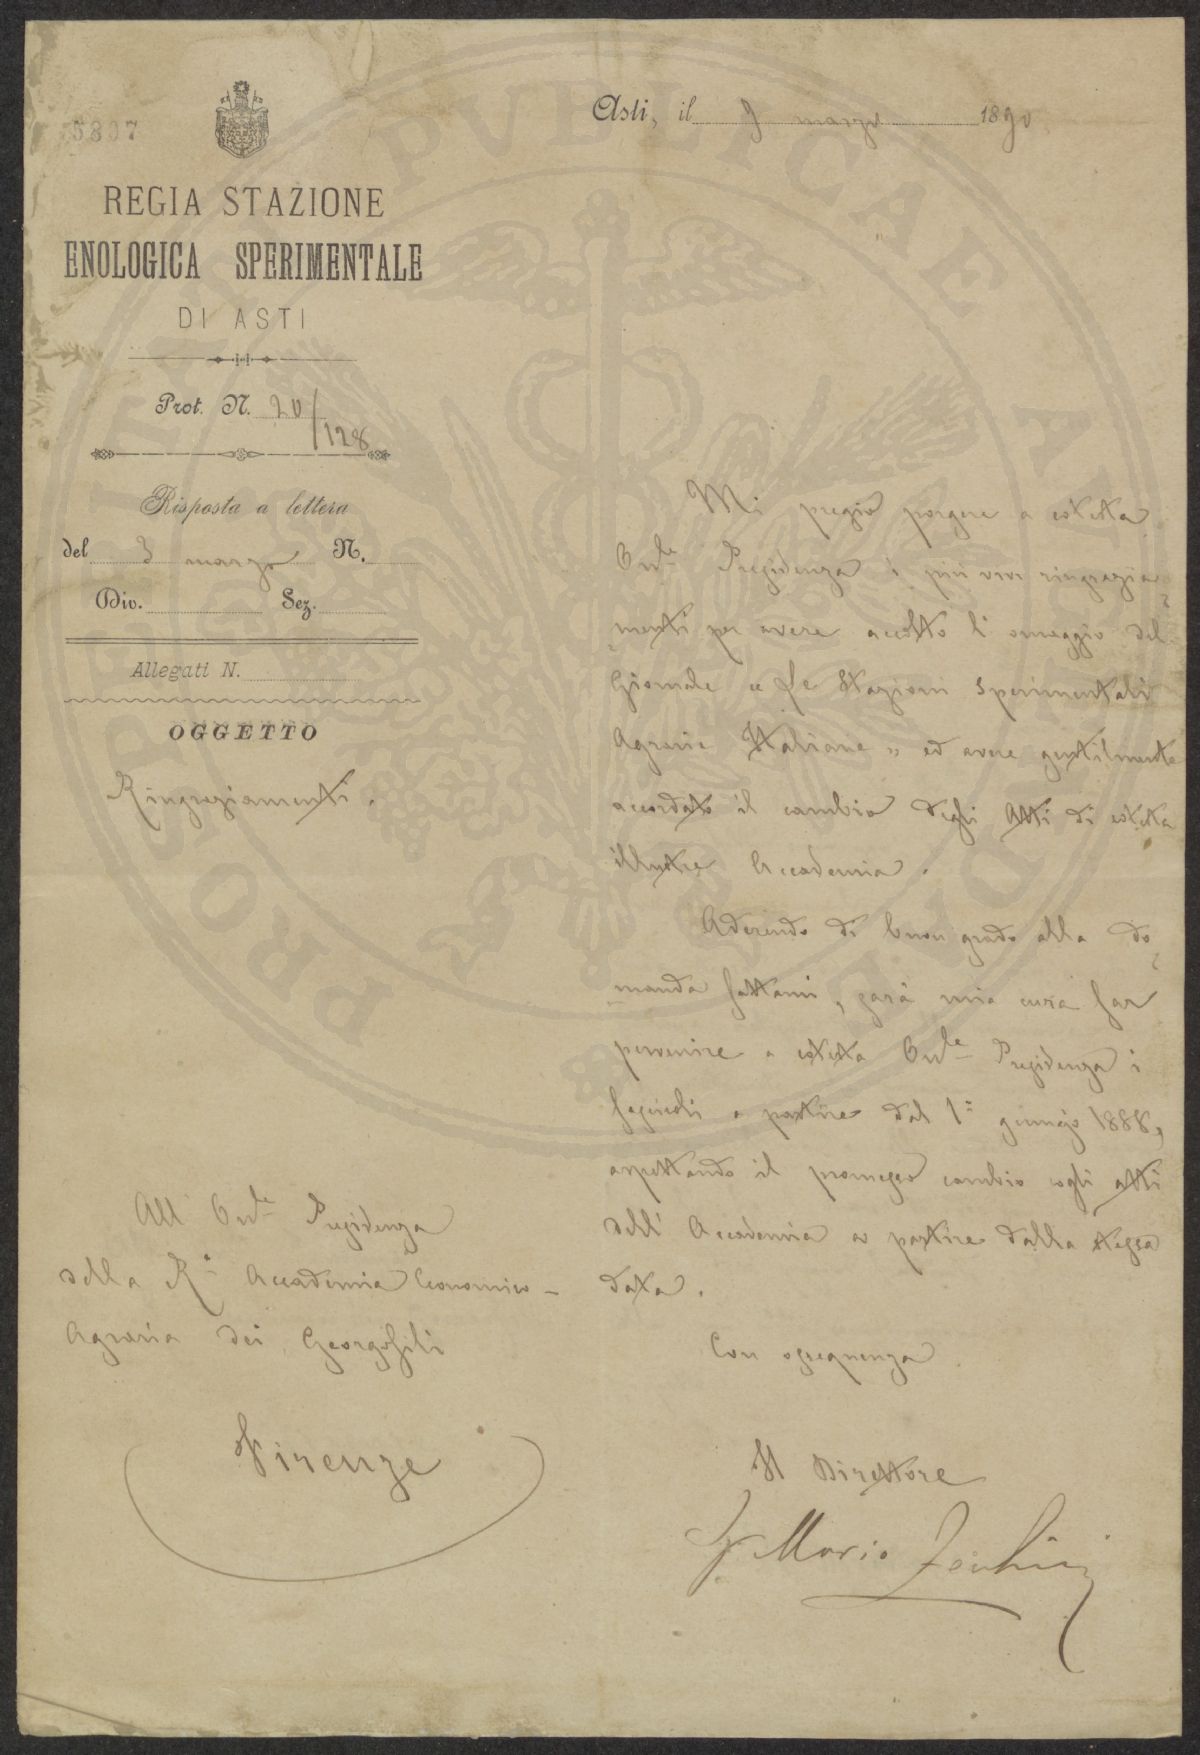 5807
Asti, il 9 marzo 1890
REGIA STAZIONE
ENOLOGICA SPERIMENTALE
DI ASTI
Prot. N. 20/128
Risposta a lettera
del 3 marzo N.
Div. Sez.
Allegati N.
OGGETTO
Ringraziamenti.
Mi pregio porgere a codesta
On.le Presidenza i più vivi ringrazia
menti per avere accolto l'omaggio del
Giornale "Le Stazioni Sperimentali
Agrarie Italiane" ed avere gentilmente
accordato il cambio degli Atti di codesta
illustre Accademia.
Aderendo di buon grado alla do
manda fattami, sarà mia cura far
pervenire a codesta On.le Presidenza i
fascicoli a partire dal 1° gennajo 1888,
aspettando il promesso cambio cogli atti
dell'Accademia a partire dalla stessa
data.
Con ossequenza
Il Direttore
Mario Zecchini
All'On.le Presidenza
della R.a Accademia Economico-
Agraria dei Georgofili
Firenze
PROSPERITATI PVBLICAE AVGENDAE